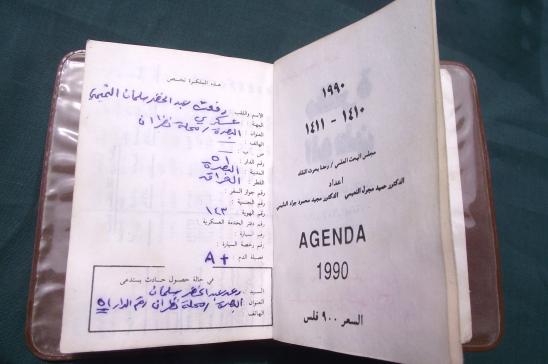 هذه المفكرة تخص
الاسم واللقب : رفعت عبد الخضر سلمان التميمي
المهنة : عسكري
العنوان : البصرة / محلة نظران
الهاتف :
ص . ب :
رقم الدار : ٥١
المدينة : البصرة
القطر : العراق
رقم جواز السفر :
رقم الجنسية :
رقم الهوية : ١٤٣
رقم دفتر الخدمة العسكرية :
رقم السيارة :
رقم رخصة السيارة :
فصيلة الدم : A+
في حالة حصول حادث يستدعى
السيد : رعد عبد الخضر سلمان
العنوان : البصرة / محلة نظران رقم الدار ٥١
الهاتف :
١٩٩٠
١٤١٠ - ١٤١١
مجلس البحث العلمي / بحوث النفط
اعداد
الدكتور حميد مجول النعيمي الدكتور مجيد محمود جراد
AGENDA
1990
السعر ٩٠٠ فلس